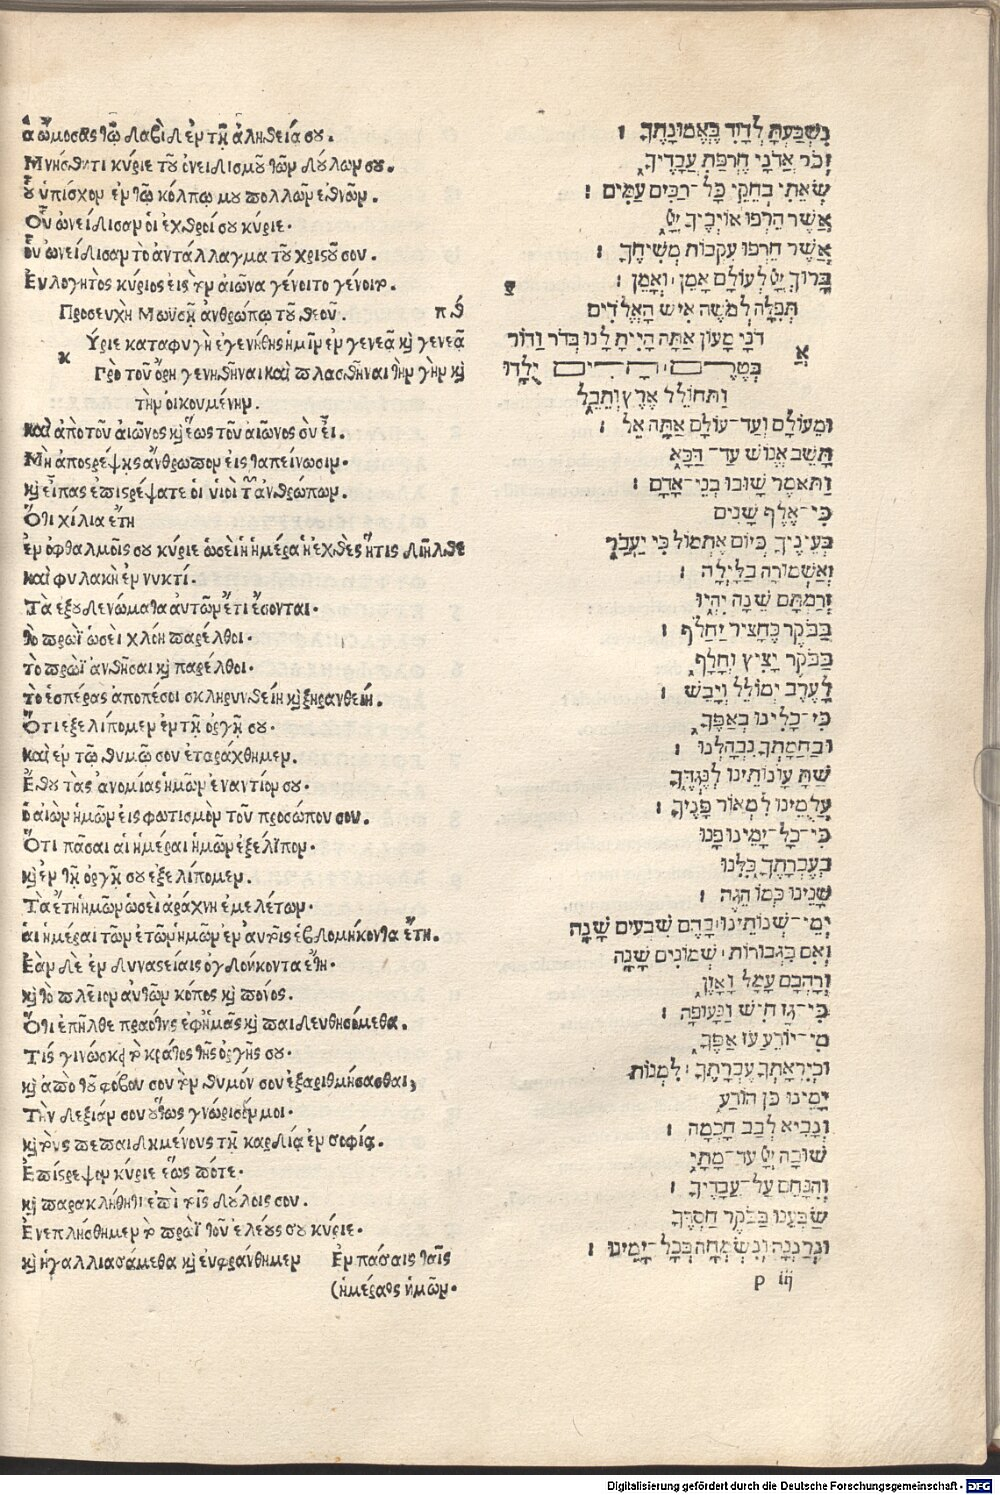 ἃ ὤμοσας τῷ δαβὶδ ἐν τῇ ἀληθείᾳ σου.
Μνήσθητι κύριε τοῦ ὀνειδισμοῦ τῶν δούλων σου.
οὗ ὑπέσχον ἐν τῷ κόλπῳ μου πολλῶν ἐθνῶν.
Οὗ ὠνείδισαν οἱ ἐχθροί σου κύριε.
οὗ ὠνείδισαν τὸ ἀντάλλαγμα τοῦ χριστοῦ σου.
Εὐλογητὸς κύριος εἰς τὸν αἰῶνα γένοιτο γένοιτο.
Προσευχὴ Μωυσῇ ἀνθρώπῳ τοῦ θεοῦ. πθ
Κύριε καταφυγὴ ἐγενήθης ἡμῖν ἐν γενεᾷ καὶ γενεᾷ
Πρὸ τοῦ ὄρη γενηθῆναι καὶ πλασθῆναι τὴν γῆν καὶ
τὴν οἰκουμένην.
καὶ ἀπὸ τοῦ αἰῶνος καὶ ἕως τοῦ αἰῶνος σὺ εἶ.
Μὴ ἀποστρέψῃς ἄνθρωπον εἰς ταπείνωσιν.
καὶ εἶπας ἐπιστρέψατε οἱ υἱοὶ τῶν ἀνθρώπων.
Ὅτι χίλια ἔτη
ἐν ὀφθαλμοῖς σου κύριε ὡσεὶ ἡ ἡμέρα ἡ ἐχθὲς ἥτις διῆλθε
καὶ φυλακὴ ἐν νυκτί.
Τὰ ἐξουδενώματα αὐτῶν ἔτι ἔσονται.
τὸ πρωῒ ὡσεὶ χλόη παρέλθοι.
τὸ πρωῒ ἀνθήσαι καὶ παρέλθοι.
τὸ ἑσπέρας ἀποπέσοι σκληρυνθείη καὶ ξηρανθείη.
Ὅτι ἐξελίπομεν ἐν τῇ ὀργῇ σου.
καὶ ἐν τῷ θυμῷ σου ἐταράχθημεν.
Ἔθου τὰς ἀνομίας ἡμῶν ἐναντίον σου.
ὁ αἰὼν ἡμῶν εἰς φωτισμὸν τοῦ προσώπου σου.
Ὅτι πᾶσαι αἱ ἡμέραι ἡμῶν ἐξέλιπον.
καὶ ἐν τῇ ὀργῇ σου ἐξελίπομεν.
Τὰ ἔτη ἡμῶν ὡσεὶ ἀράχνη ἐμελέτων.
αἱ ἡμέραι τῶν ἐτῶν ἡμῶν ἐν αὐτοῖς ἑβδομήκοντα ἔτη.
Ἐὰν δὲ ἐν δυναστείαις ὀγδοήκοντα ἔτη.
καὶ τὸ πλεῖον αὐτῶν κόπος καὶ πόνος.
Ὅτι ἐπῆλθε πραότης ἐφ ἡμᾶς καὶ παιδευθησόμεθα.
Τίς γινώσκει τὸ κράτος τῆς ὀργῆς σου.
καὶ ἀπὸ τοῦ φόβου σου τὸν θυμόν σου ἐξαριθμήσασθαι,
Τὴν δεξιάν σου οὕτως γνώρισόν μοι.
καὶ τοὺς πεπαιδημένους τῇ καρδίᾳ ἐν σοφίᾳ.
Ἐπίστρεψον κύριε ἕως πότε.
καὶ παρακλήθητι ἐπὶ τοῖς δούλοις σου.
Ἐνεπλήσθημεν τὸ πρωῒ τοῦ ἐλέους σου κύριε.
καὶ ἠγαλλιασάμεθα καὶ εὐφράνθημεν Ἐν πάσαις ταῖς
(ἡμέραις ἡμῶν.
נִשְׁבַּעְתָּ לְדָוִד בֶּאֱמוּנָתֶךָ :
זְכֹר אֲדֹנָי חֶרְפַּת עֲבָדֶיךָ
שְׂאֵתִי בְחֵקִי כָּל־רַבִּים עַמִּים :
אֲשֶׁר חֵרְפוּ אוֹיְבֶיךָ
אֲשֶׁר חֵרְפוּ עִקְּבוֹת מְשִׁיחֶךָ :
בָּרוּךְ לְעוֹלָם אָמֵן וְאָמֵן :
תְּפִלָּה לְמֹשֶׁה אִישׁ הָאֱלֹדִים
דֹנָי מָעוֹן אַתָּה הָיִיתָ לָּנוּ בְּדֹר וָדוֹר
אֲ
בְּטֶרֶם הָרִים יֻלָּדוּ
וַתְּחוֹלֵל אֶרֶץ וְתֵבֵל
וּמֵעוֹלָם וְעַד־עוֹלָם אַתָּה אֵל :
תָּשֵׁב אֱנוֹשׁ עַד־דַּכָּא
וַתֹּאמֶר שׁוּבוּ בְנֵי־אָדָם :
כִּי־אֶלֶף שָׁנִים
בְּעֵינֶיךָ כְּיוֹם אֶתְמוֹל כִּי יַעֲבֹר
וְאַשְׁמוּרָה בַלָּיְלָה :
זְרַמְתָּם שֵׁנָה יִהְיוּ
בַּבֹּקֶר כֶּחָצִיר יַחֲלֹף :
בַּבֹּקֶר יָצִיץ וְחָלָף
לָעֶרֶב יְמוֹלֵל וְיָבֵשׁ :
כִּי־כָלִינוּ בְאַפֶּךָ
וּבַחֲמָתְךָ נִבְהָלְנוּ :
שַׁתָּ עֲוֹנוֹתֵינוּ לְנֶגְדֶּךָ
עֲלֻמֵינוּ לִמְאוֹר פָּנֶיךָ :
כִּי־כָל־יָמֵינוּ פָּנוּ
בְעֶבְרָתֶךָ כִּלִּינוּ
שָׁנֵינוּ כְּמוֹ הֶגֶה :
יְמֵי־שְׁנוֹתֵינוּ בָּהֶם שִׁבְעִים שָׁנָה
וְאִם בִּגְבוּרוֹת שְׁמוֹנִים שָׁנָה
וְרָהְבָּם עָמָל וָאָוֶן
כִּי־גָז חִישׁ וַנָּעֻפָה :
מִי־יוֹדֵעַ עֹז אַפֶּךָ
וּכְיִרְאָתְךָ עֶבְרָתֶךָ : לִמְנוֹת
יָמֵינוּ כֵּן הוֹדַע
וְנָבִיא לְבַב חָכְמָה :
שׁוּבָה עַד־מָתָי
וְהִנָּחֵם עַל־עֲבָדֶיךָ :
שַׂבְּעֵנוּ בַבֹּקֶר חַסְדֶּךָ
וּנְרַנְּנָה וְנִשְׂמְחָה בְּכָל־יָמֵינוּ :
p iij
Digitalisierung gefördert durch die Deutsche Forschungsgemeinschaft - DFG